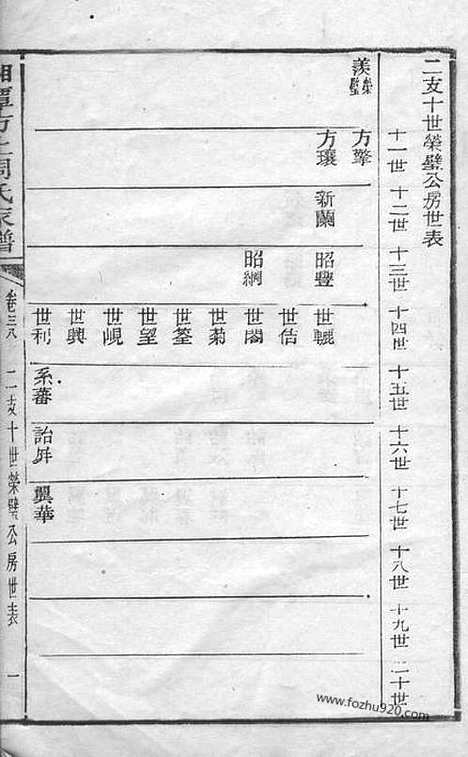 二支十世榮璧公房世表
十一世 十二世 十三世 十四世 十五世 十六世 十七世 十八世 十九世 二十世
榮璧
方擎
方瓖 新蘭 昭豐 世轆
世佶
昭綱 世閣
世菊
世筌
世望
世峴
世興
世利 系蕃 詒屏 巽華
湘潭 周氏家譜
卷三 二支十世榮璧公房世表 一
www.fozhu920.com